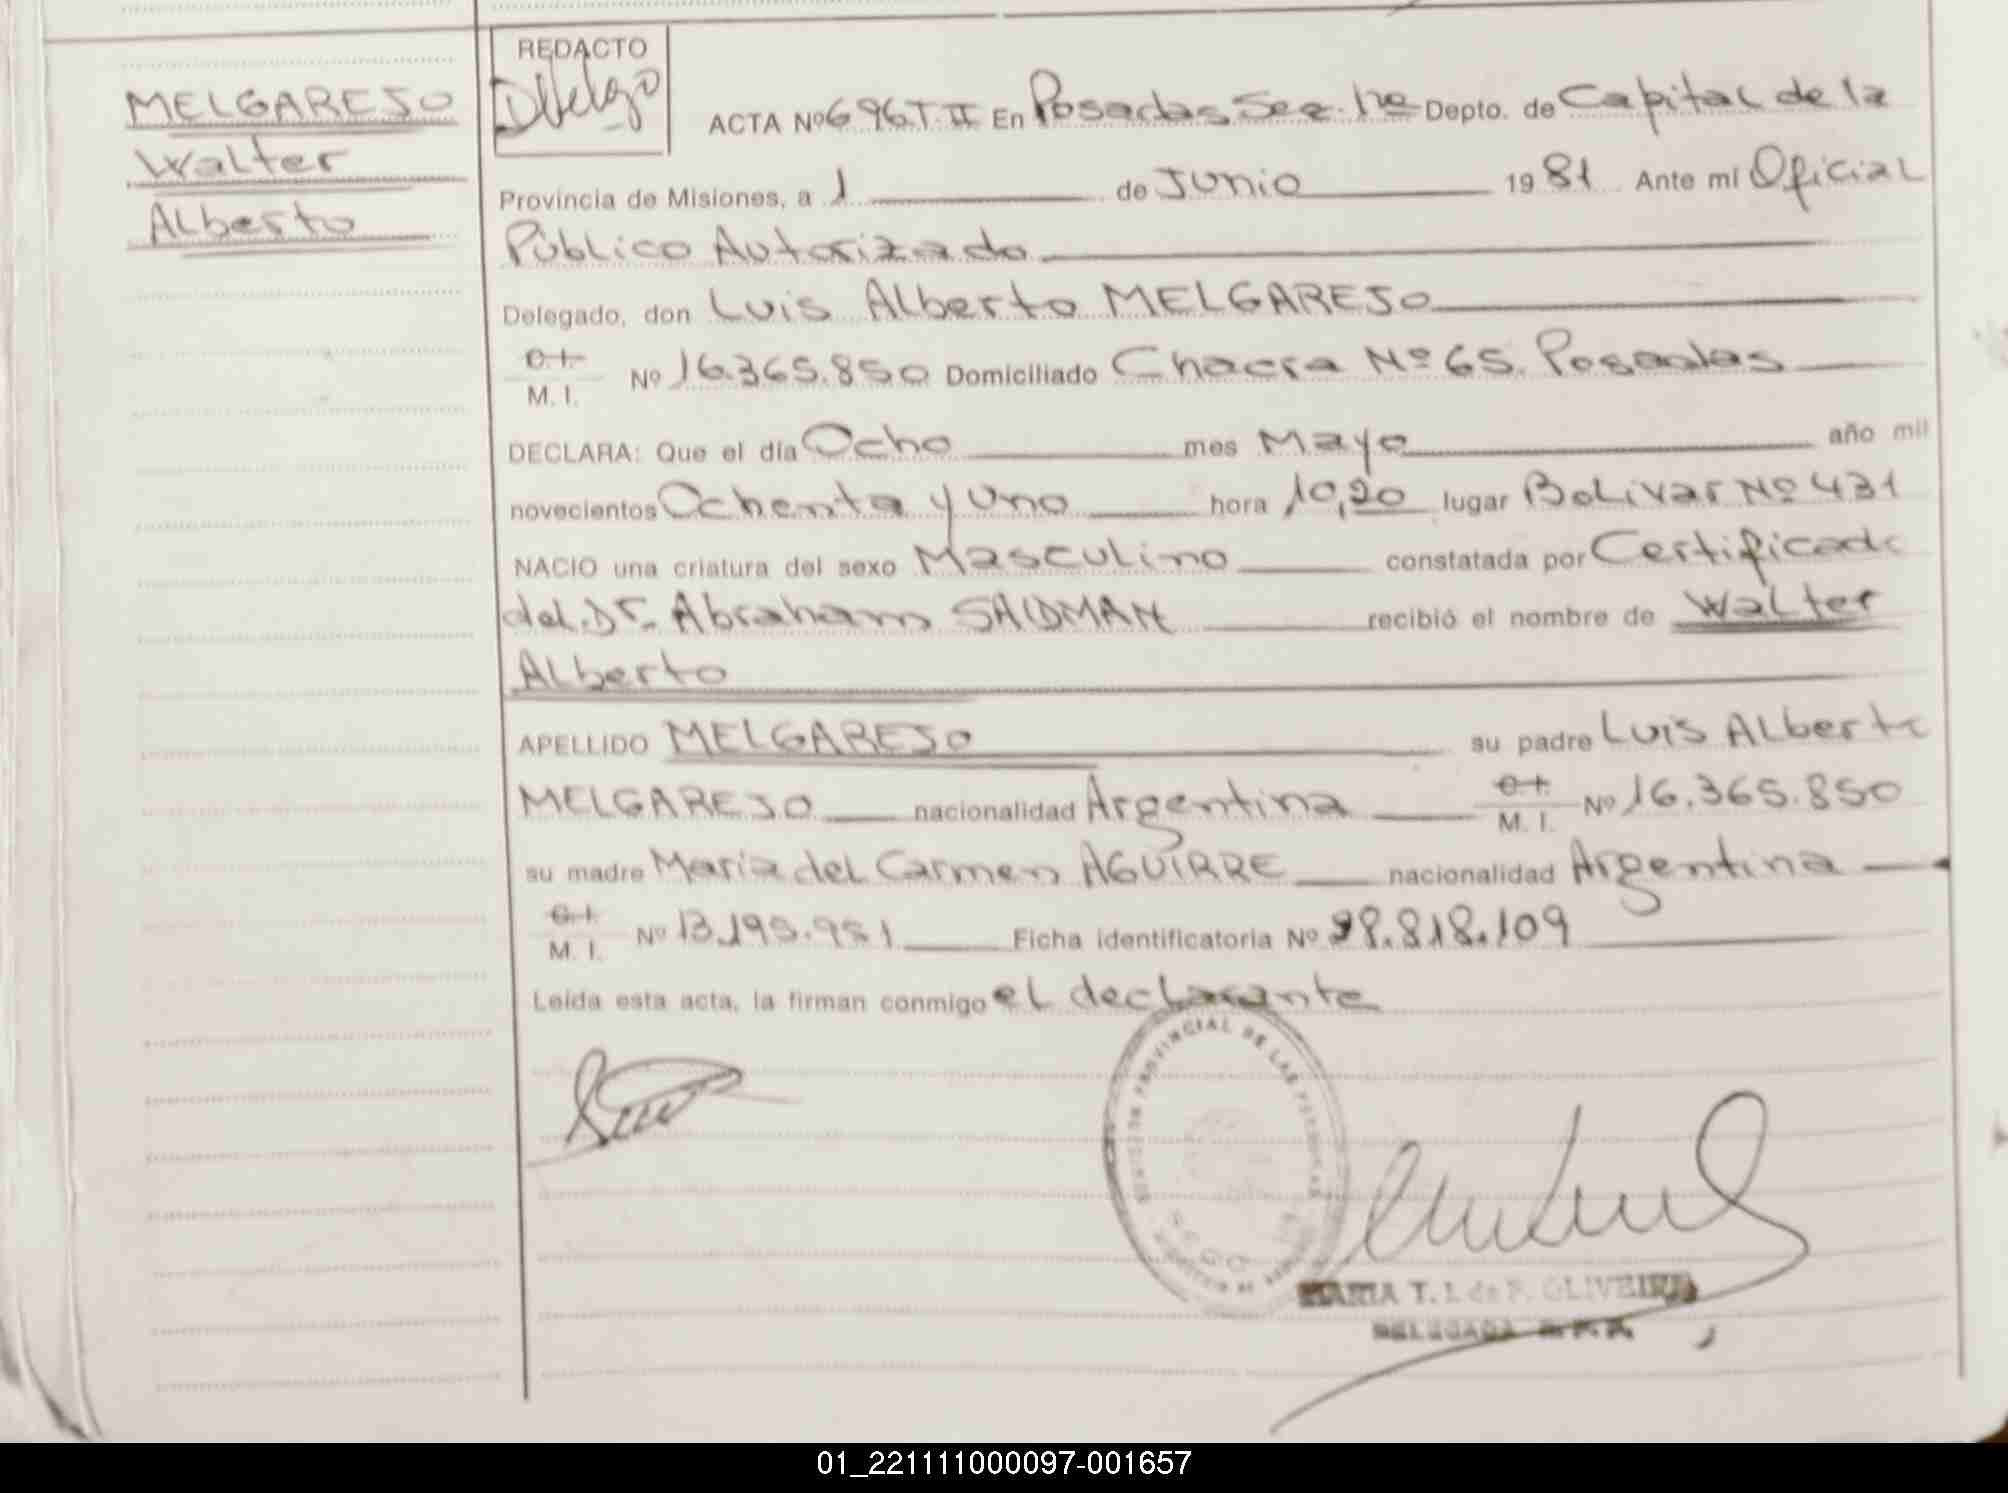 REDACTO
MELGAREJO
Walter
Alberto
ACTA Nº 696 T. II En Posadas Sec. 1ra Depto. de Capital de la
Provincia de Misiones, a 1 de Junio 1981 Ante mí Oficial
Público Autorizado
Delegado, don Luis Alberto MELGAREJO
C.I.
M. I. Nº 16.365.850 Domiciliado Chacra Nº 65. Posadas
DECLARA: Que el día Ocho mes Mayo año mil
novecientos Ochenta y Uno hora 10,20 lugar Bolivar Nº 431
NACIO una criatura del sexo Masculino constatada por Certificado
del. Dr. Abraham SAIDMAN recibió el nombre de Walter
Alberto
APELLIDO MELGAREJO su padre Luis Alberto
MELGAREJO nacionalidad Argentina C.I.
M. I. Nº 16.365.850
su madre Maria del Carmen AGUIRRE nacionalidad Argentina
C.I.
M. I. Nº 13.195.951 Ficha identificatoria Nº 28.818.109
Leída esta acta, la firman conmigo el declarante
PROVINCIAL DE LAS PERSONAS
MARIA T. I. de F. OLIVEIRA
DELEGADA
01_221111000097-001657